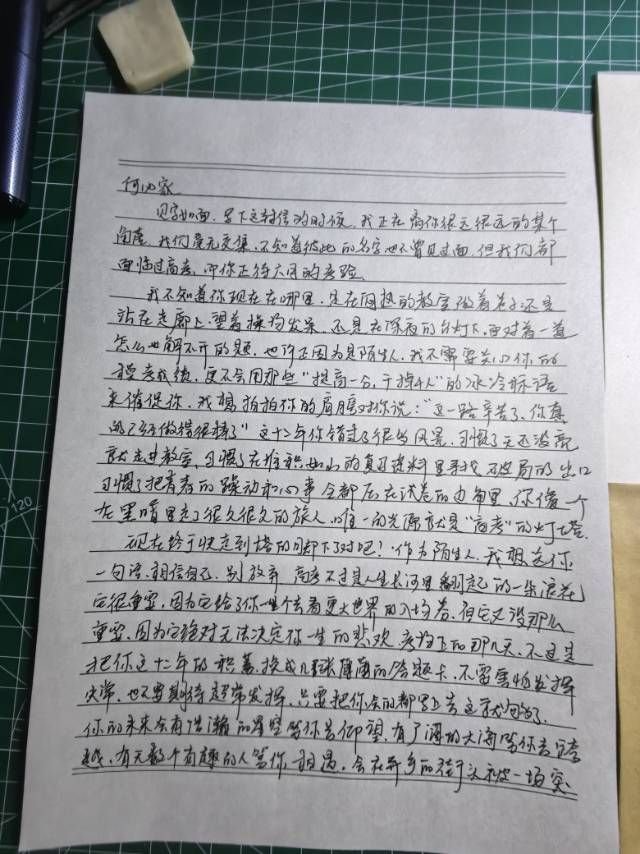 见字如面，写下这封信的时候，我正在离你很远很远的某个
角度，我们毫无交集，不知道彼此的名字也不曾见过面，但我们都
面临过高考，而你正待六月的考验
我不知道你现在在哪里，是在闷热的教室做着卷子还是
站在走廊上望着操场发呆，还是在深夜的台灯下，面对着一道
怎么也解不开的题，也许正因为是陌生人，我不需要关心你的
模考成绩，更不会用那些"提高一分，干掉千人"的冰冷标语
来催促你，我想拍拍你的肩膀对你说："这一路辛苦了，你真
的已经做得很棒了"这十二年你错过了很多风景，习惯了天还没亮
就走进教室，习惯了在堆积如山的复习资料里寻找破局的出口
习惯了把青春的躁动和心事全都压在试卷的边角里，你像一个
在黑暗里走了很久很久的旅人，唯一的光源就是"高考"的灯塔
现在终于快走到塔的脚下了对吧？作为陌生人，我想送你
一句话：相信自己，别放弃 高考不过是人生长河里翻起的一朵浪花
它很重要，因为它给了你一个去看更大世界的入场券，但它又没那么
重要，因为它绝对无法决定你一生的悲欢 考场上的那几天，不过是
把你这十二年的积蓄，换成几张薄薄的答题卡，不需害怕发挥
失常，也不要期待超常发挥，只要把你会的都写上去这就够了，
你的未来会有浩瀚的星空等你去仰望，有广阔的大海等你去穿
越，有无数个有趣的人等你相遇，会在异乡的街头被一场突
120